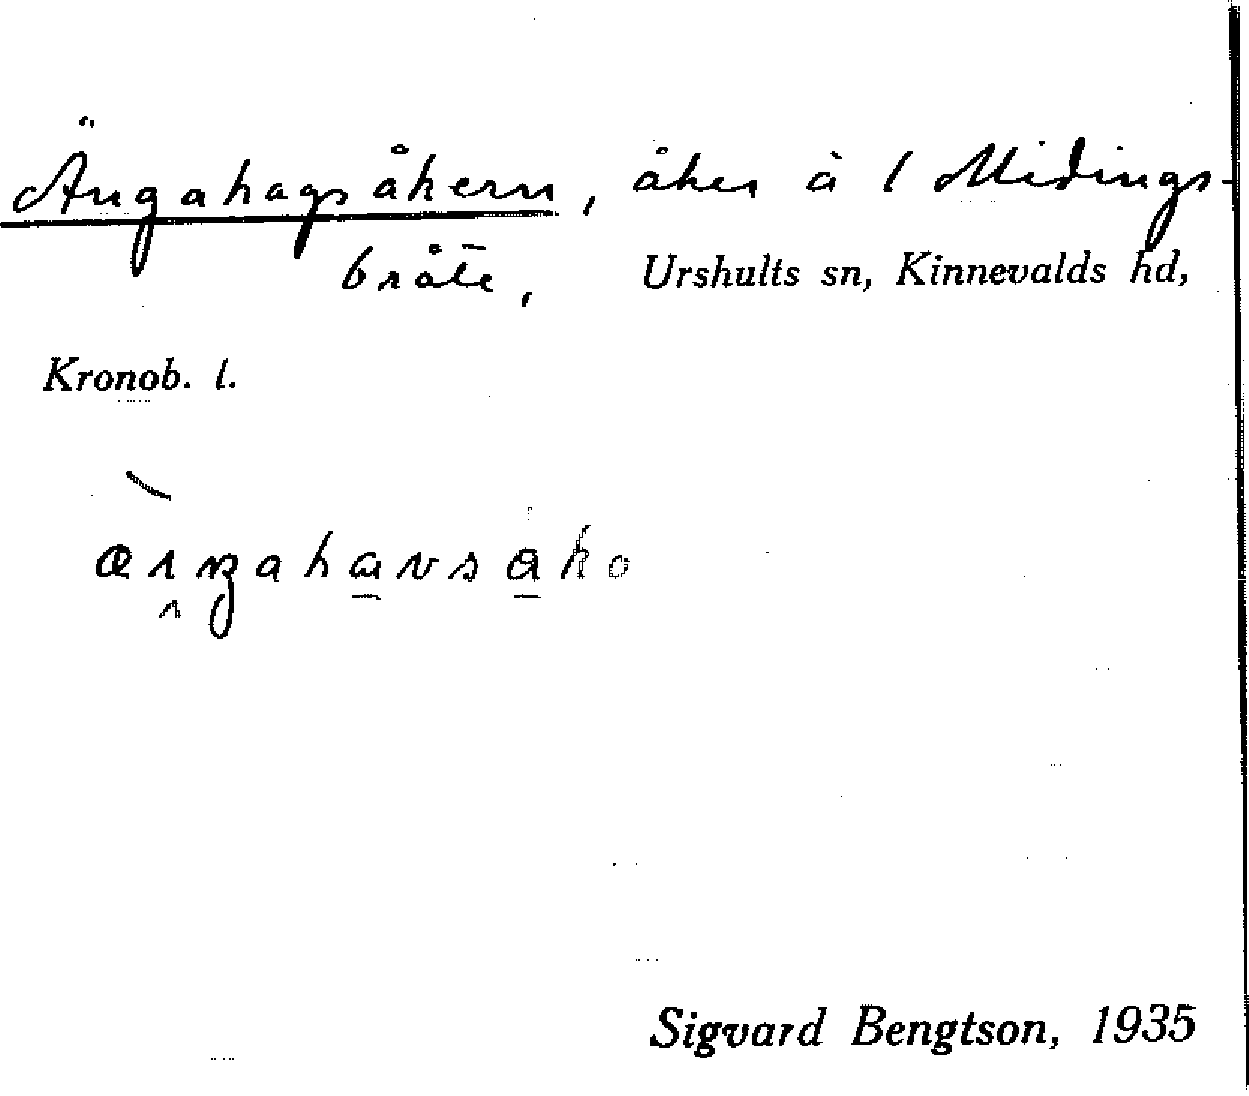 Ängahagsåkern, åker å 1 Midings-
bråte, Urshults sn, Kinnevalds hd,
Kronob. l.
Sigvard Bengtson, 1935